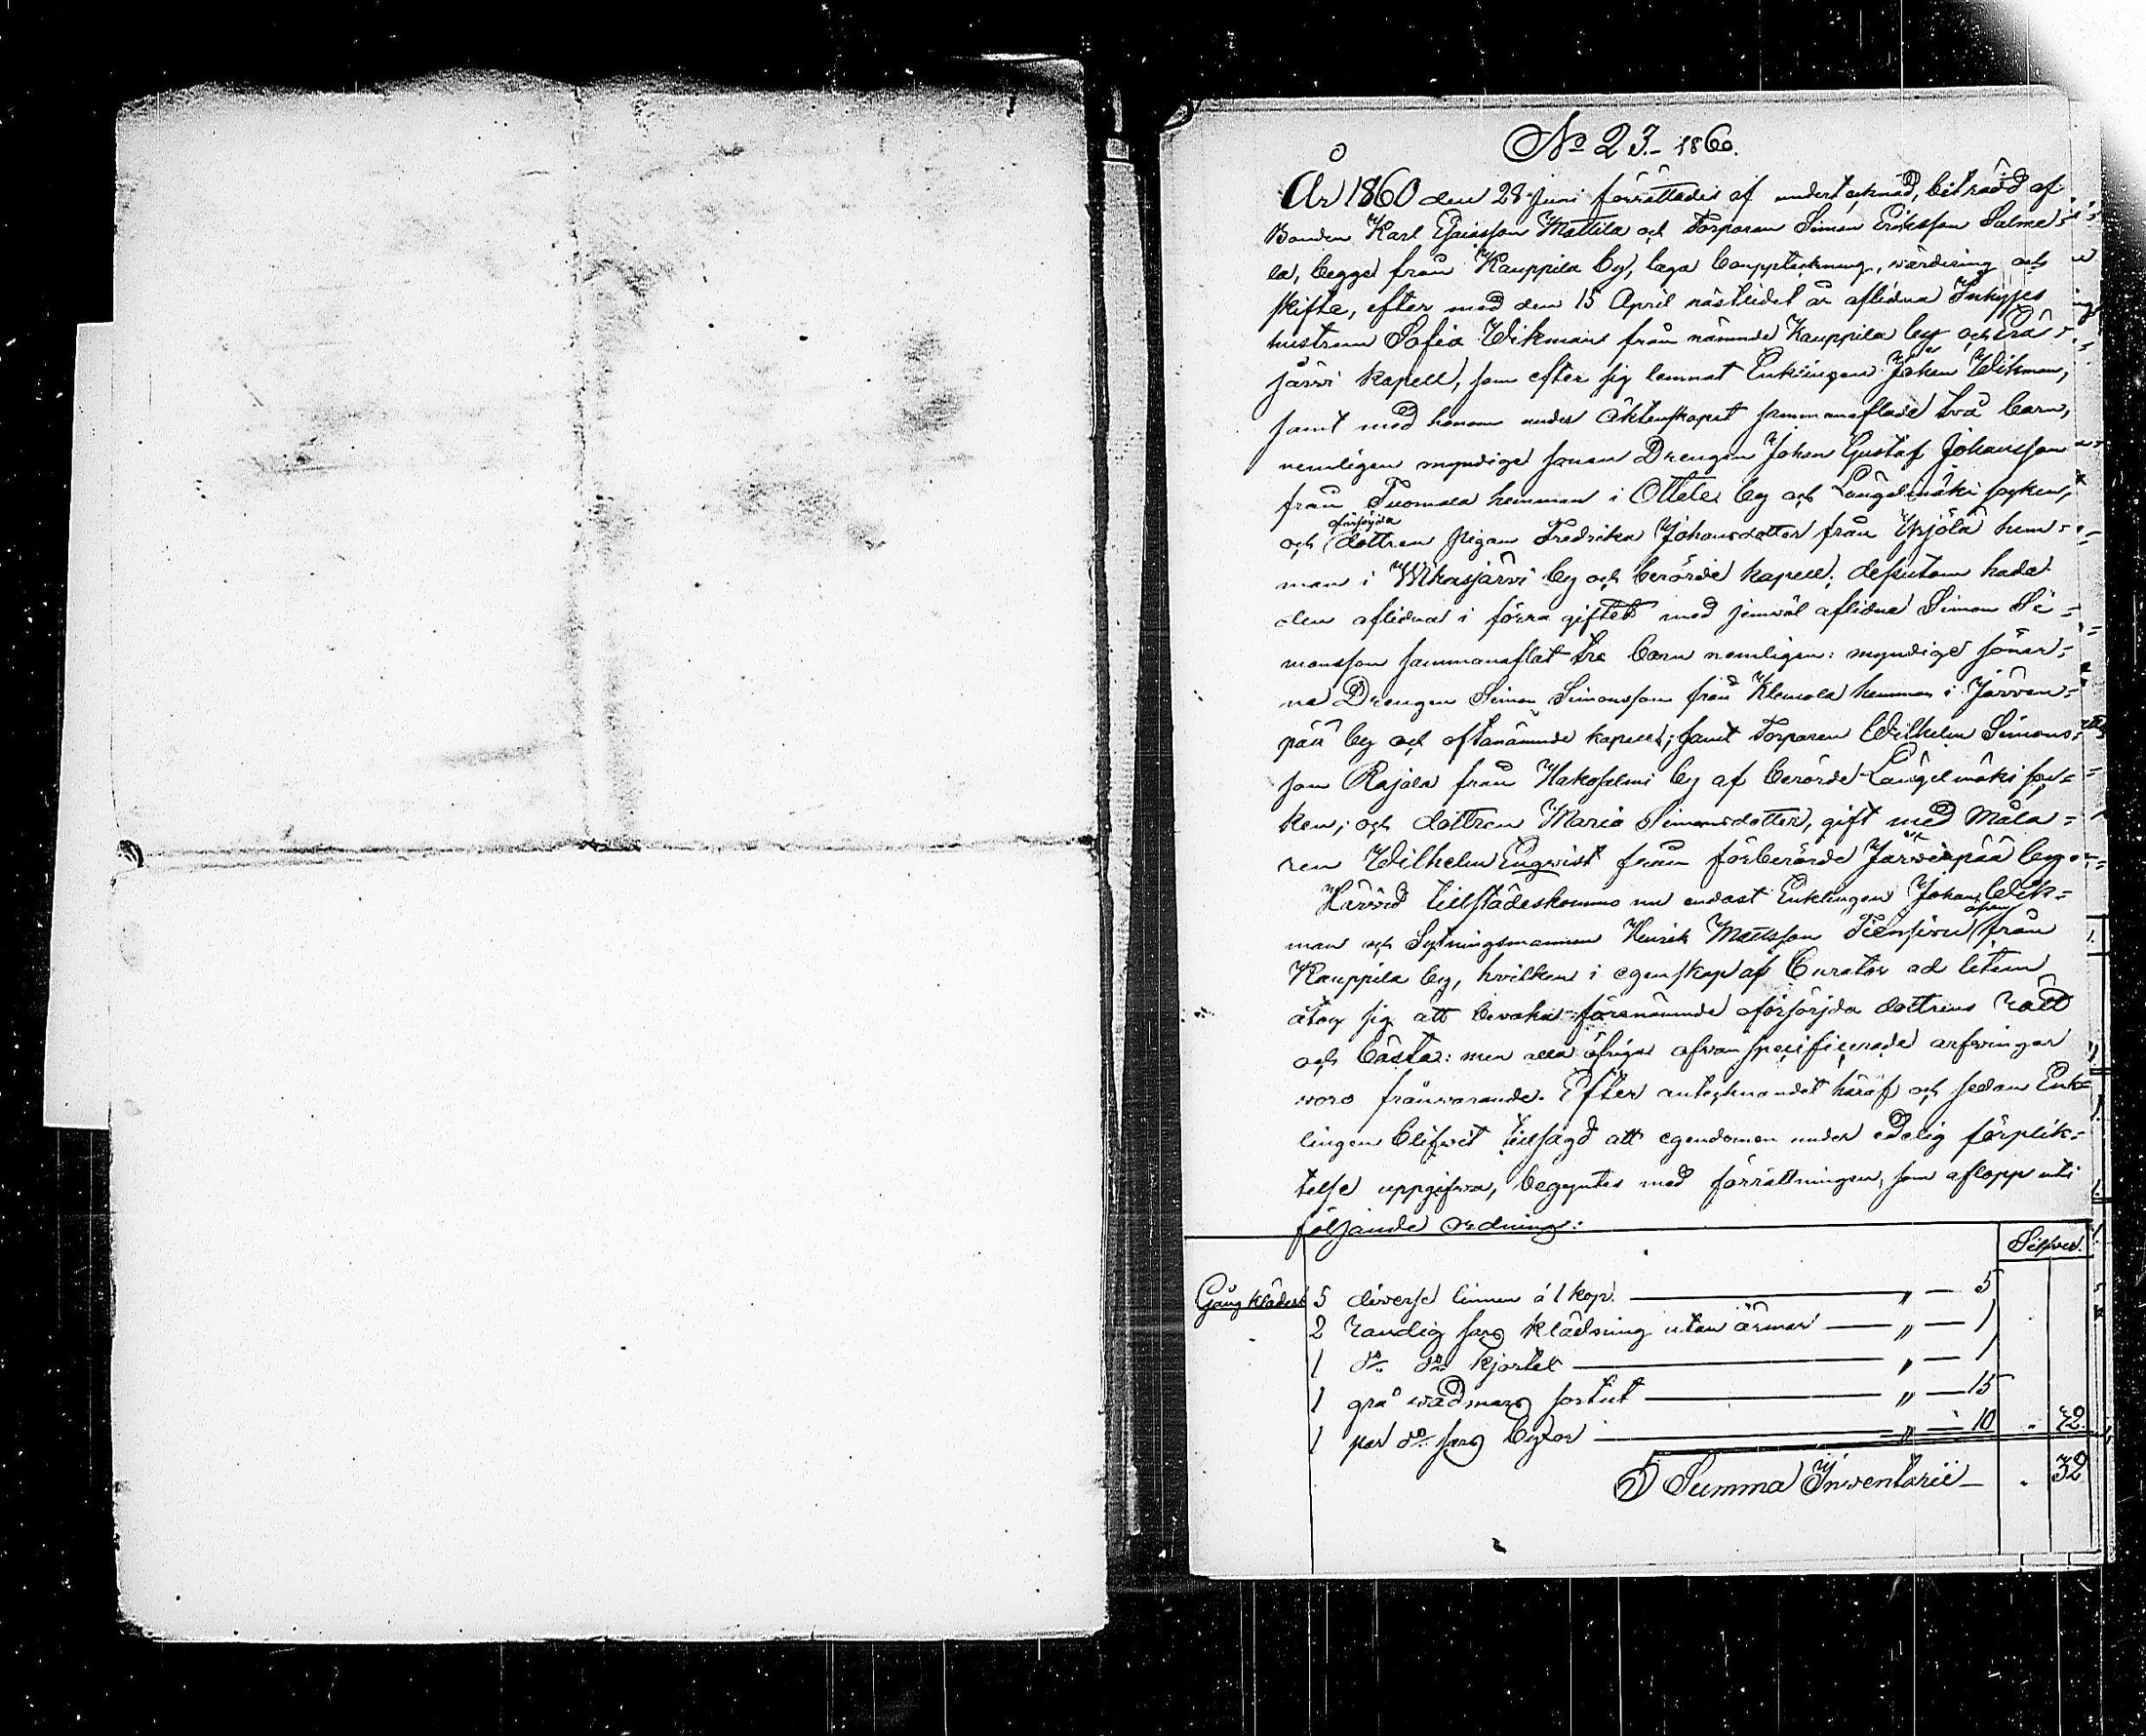 No 23.- 1860.
År 1860 den 28 Juni förrättades af undertecknad, biträdd af
Bonden Karl Esaiasson Mattila och Torparen Simon Eriksson Salme-
la, begge från Kauppila by, laga bouppteckning, wärdering och
skifte, efter med den 15 April nästledet år aflidna Inhyses
hustrun Sofia Wikman från nämnde Kauppila by och Erä-
järvi kapell, som efter sig lemnat Enklingen Johan Wikman,
samt med honom under äktenskapet sammanaflade två barn,
nemligen myndige sonen Drengen Johan Gustaf Johansson
från Tuomala hemman i Ottete by och Längelmäki socken,
och oförsörjda dottren pigan Fredrika Johansdotter från Yrjölä hem-
man i Wihasjärvi by och berörde kapell; dessutom hade
den aflidna i förra giftet med jemväl aflidne Simon Si-
monsson sammanaflat tre barn nemligen: myndige söner-
na Drengen Simon Simonsson från Klemola hemman i Järven-
pää by och oftanämnde kapell; samt Torparen Wilhelm Simons-
son Rajala från Hakosalmi by af berörde Längelmäki soc-
ken; och dottren Maria Simonsdotter, gift med måla-
ren Wilhelm Engvist från förberörde Järvenpää by.
Härvid tillstädeskommo nu endast Enklingen Johan Wik-
man och Sytningsmannen Henrik Mattsson även från
Kauppila by, hvilken i egenskap af Curator ad litem
åtog sig att bevaka förenämnde oförsörjda dottrens rätt
och bästa: men alla öfriga ofvan specificerade arfvingar
woro frånvarande. Efter antecknandet häraf och sedan Enk-
lingen blifvit tillsagd att egendomen under edelig förplik-
telse uppgifva, begyntes med förrättningen, som aflopp uti
följande ordning:
Silfver.
Gång kläder 5 diverse linnen á 1 kop. " — 5
2 randig sars klädning utan ärmar " — 1
1 do do kjortel " — 1
1 grå wadmars sortut " — 15
1 par do sars byxor " — 10 . 32.
Summa Inventarii — . 32